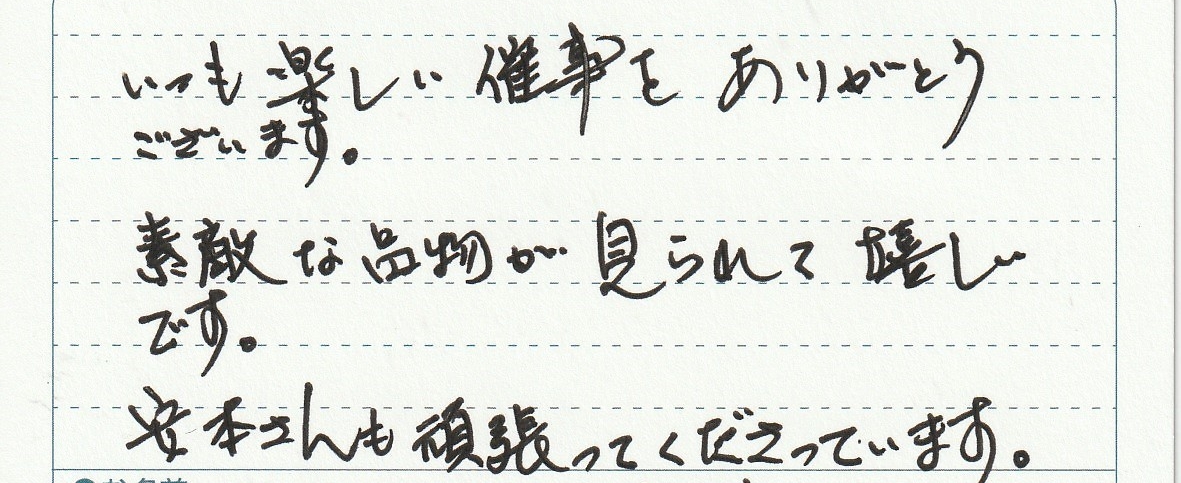 いつも楽しい催事をありがとう
ございます。
素敵な品物が見られて嬉しい
です。
安本さんも頑張ってくださっています。